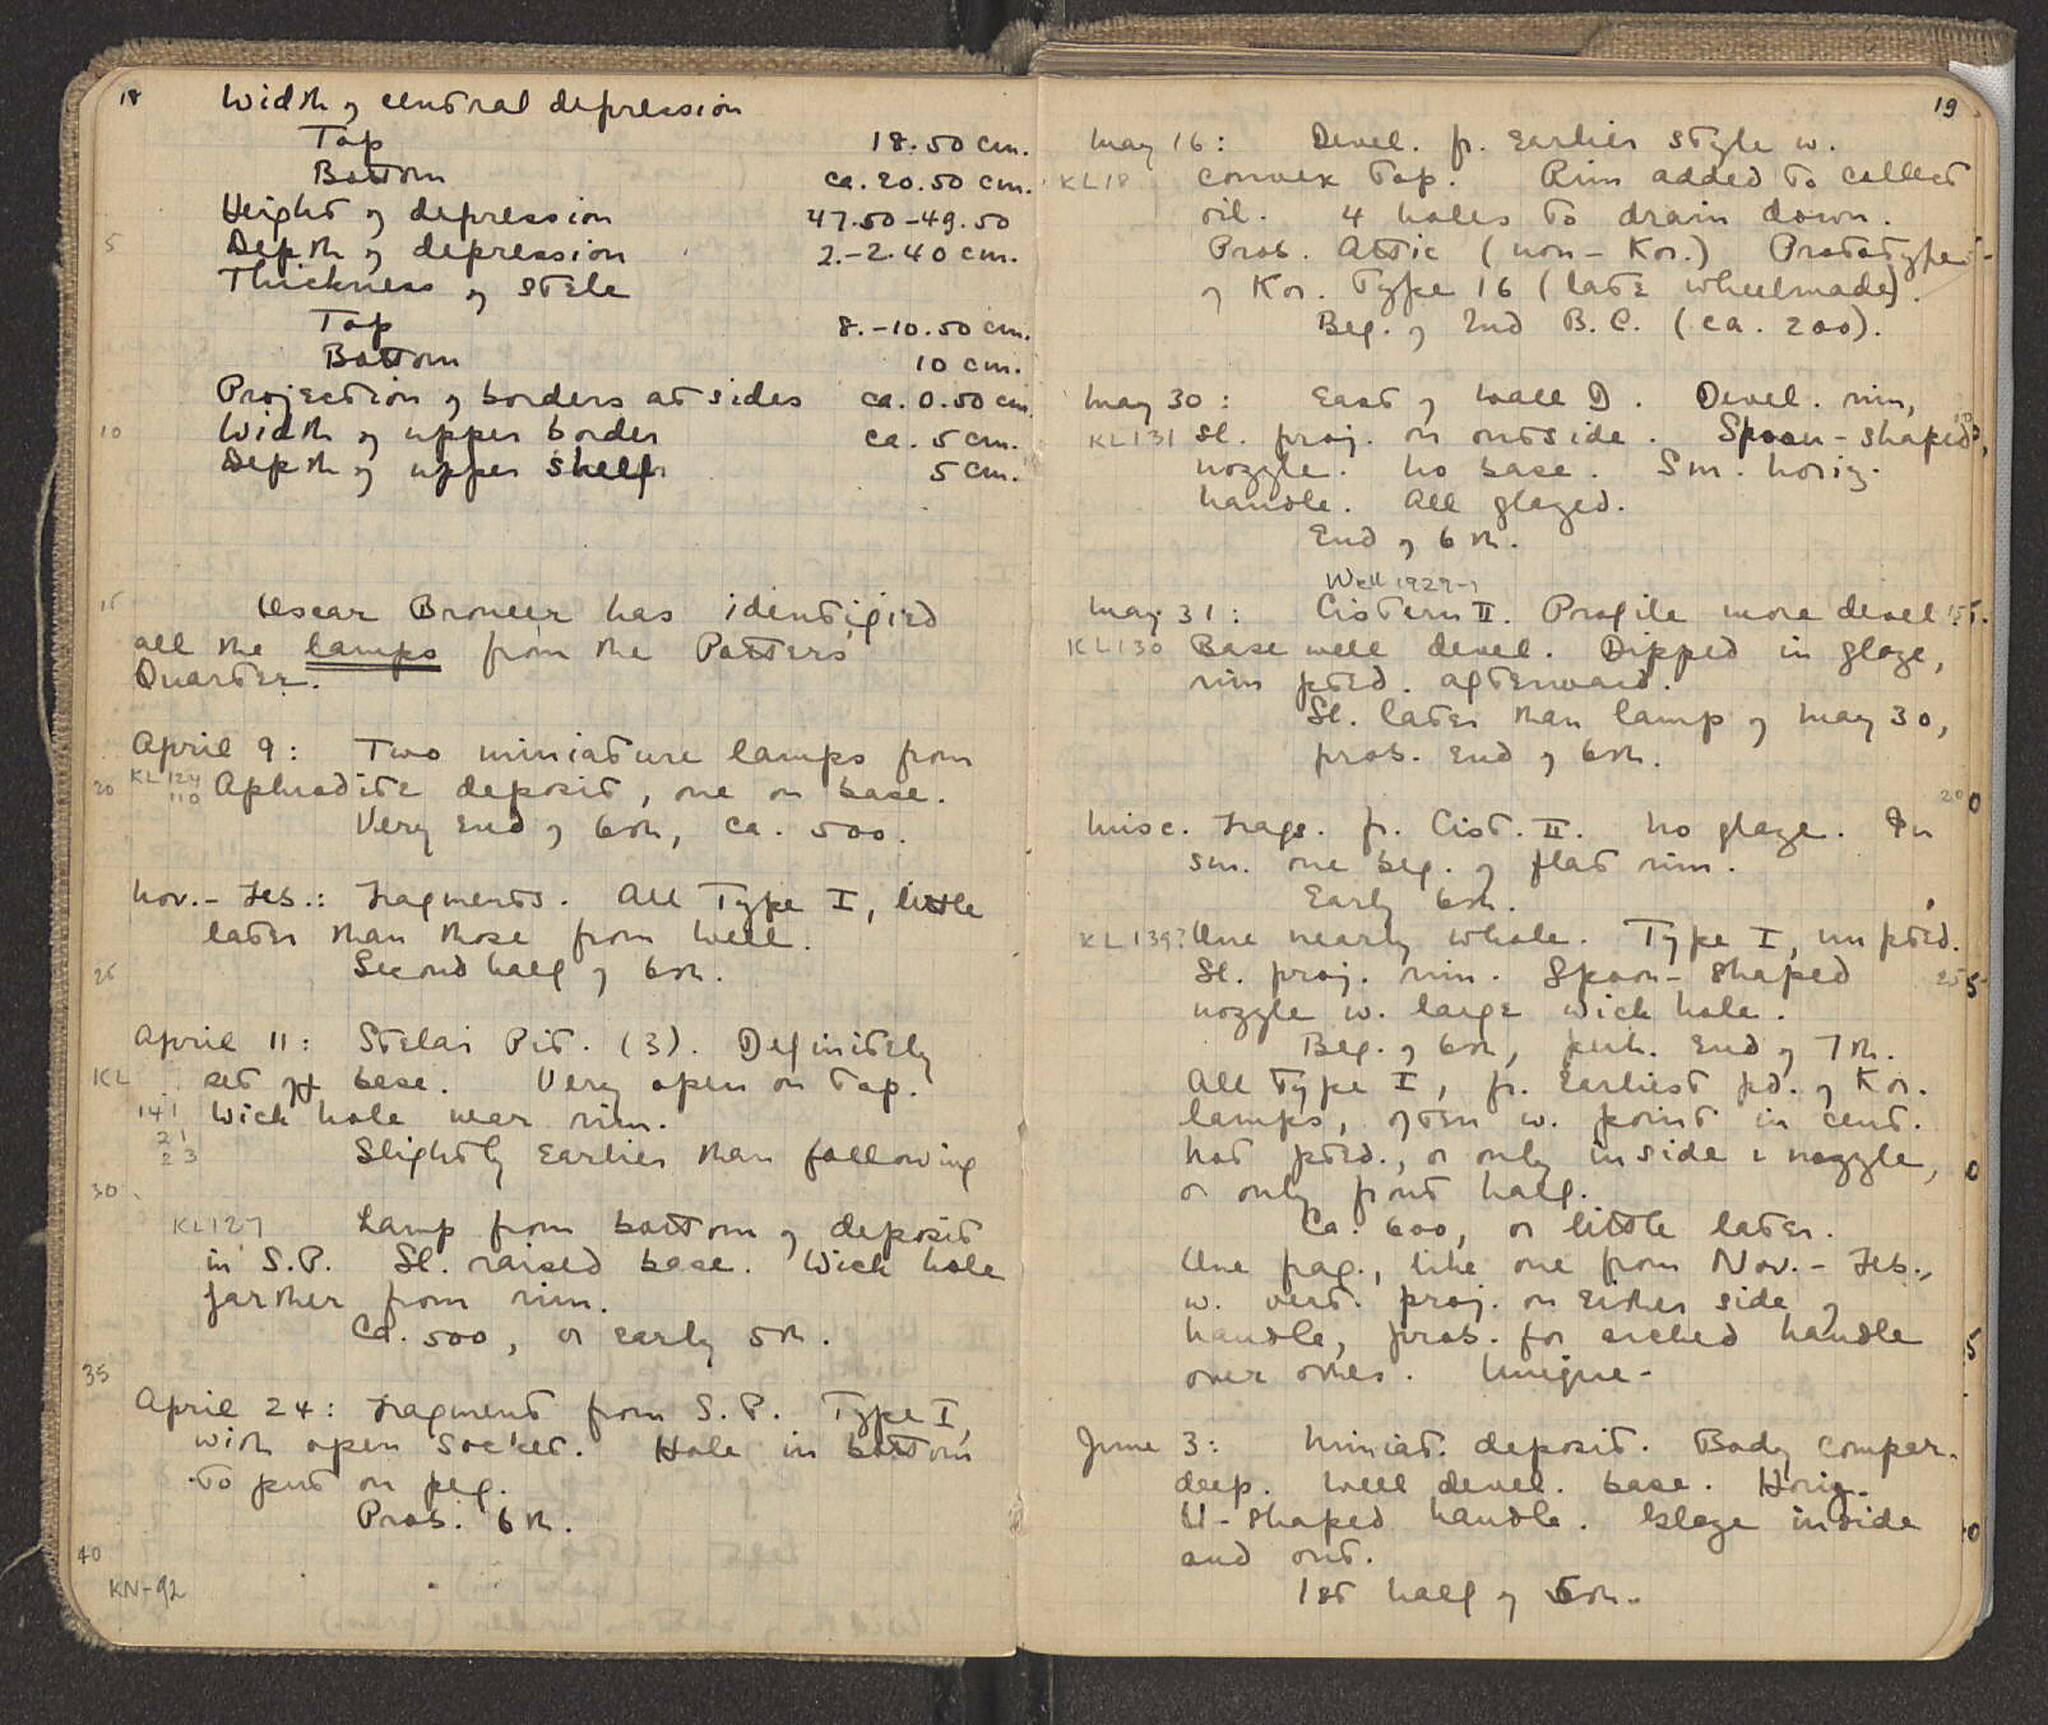 18
Width of central depression
Top 18.50 cm.
Bottom ca. 20.50 cm.
Height of depression 47.50-49.50
5 Depth of depression 2.-2.40 cm.
Thickness of stele
Top 8.-10.50 cm.
Bottom 10 cm.
Projection of borders at sides ca. 0.50 cm.
10 Width of upper border ca. 5 cm.
Depth of upper shelf 5 cm.
15 Oscar Broneer has identified
all the lamps from the Potters'
Quarter.
April 9: Two miniature lamps from
20 KL 124 110 Aphrodite deposit, one on base.
Very end of 6th, ca. 500.
Nov.- Feb.: Fragments. All Type I, little
later than those from Well.
25 Second half of 6th.
April 11: Stelai Pit. (3). Definitely
KL set off base. Very open on top.
141 Wick hole near rim.
21
23 Slightly earlier than following
30
KL127 Lamp from bottom of deposit
in S.P. Sl. raised base. Wick hole
farther from rim.
Ca. 500, or early 5th.
35
April 24: Fragment from S.P. Type I,
with open socket. Hole in bottom
to put on peg.
Prob. 6th.
40
KN-92
19
May 16: Devel. fr. earlier style w.
KL18 convex top. Rim added to collect
oil. 4 holes to drain down.
Prob. Attic (non-Kor.) Prototype
of Kor. Type 16 (late wheelmade).
Beg. of 2nd B.C. (ca. 200).
May 30: East of Wall D. Devel. rim,
KL131 sl. proj. on outside. Spoon-shaped
nozzle. No base. Sm. horiz.
handle. All glazed.
End of 6th.
Well 1929-1
May 31: Cistern II. Profile more devel. 15
KL130 Base well devel. Dipped in glaze,
rim pted. afterward.
Sl. later than lamp of May 30,
prob. end of 6th.
20
Misc. frags. fr. Cist. II. No glaze. In
sm. one beg. of flat rim.
Early 6th.
KL139? One nearly whole. Type I, unpted.
Sl. proj. rim. Spoon-shaped 25
nozzle w. large wick hole.
Beg. of 6th, perh. end of 7th.
All Type I, fr. earliest pd. of Kor.
lamps, often w. point in cent.
Not pted., or only inside & nozzle,
or only front half.
Ca. 600, or little later.
One frag., like one from Nov.- Feb.,
w. vert. proj. on either side of
handle, prob. for arched handle
over other. Unique.
June 3: Miniat. deposit. Body compar.
deep. Well devel. base. Horiz.
U-shaped handle. Glaze inside
and out.
1st half of 5th.